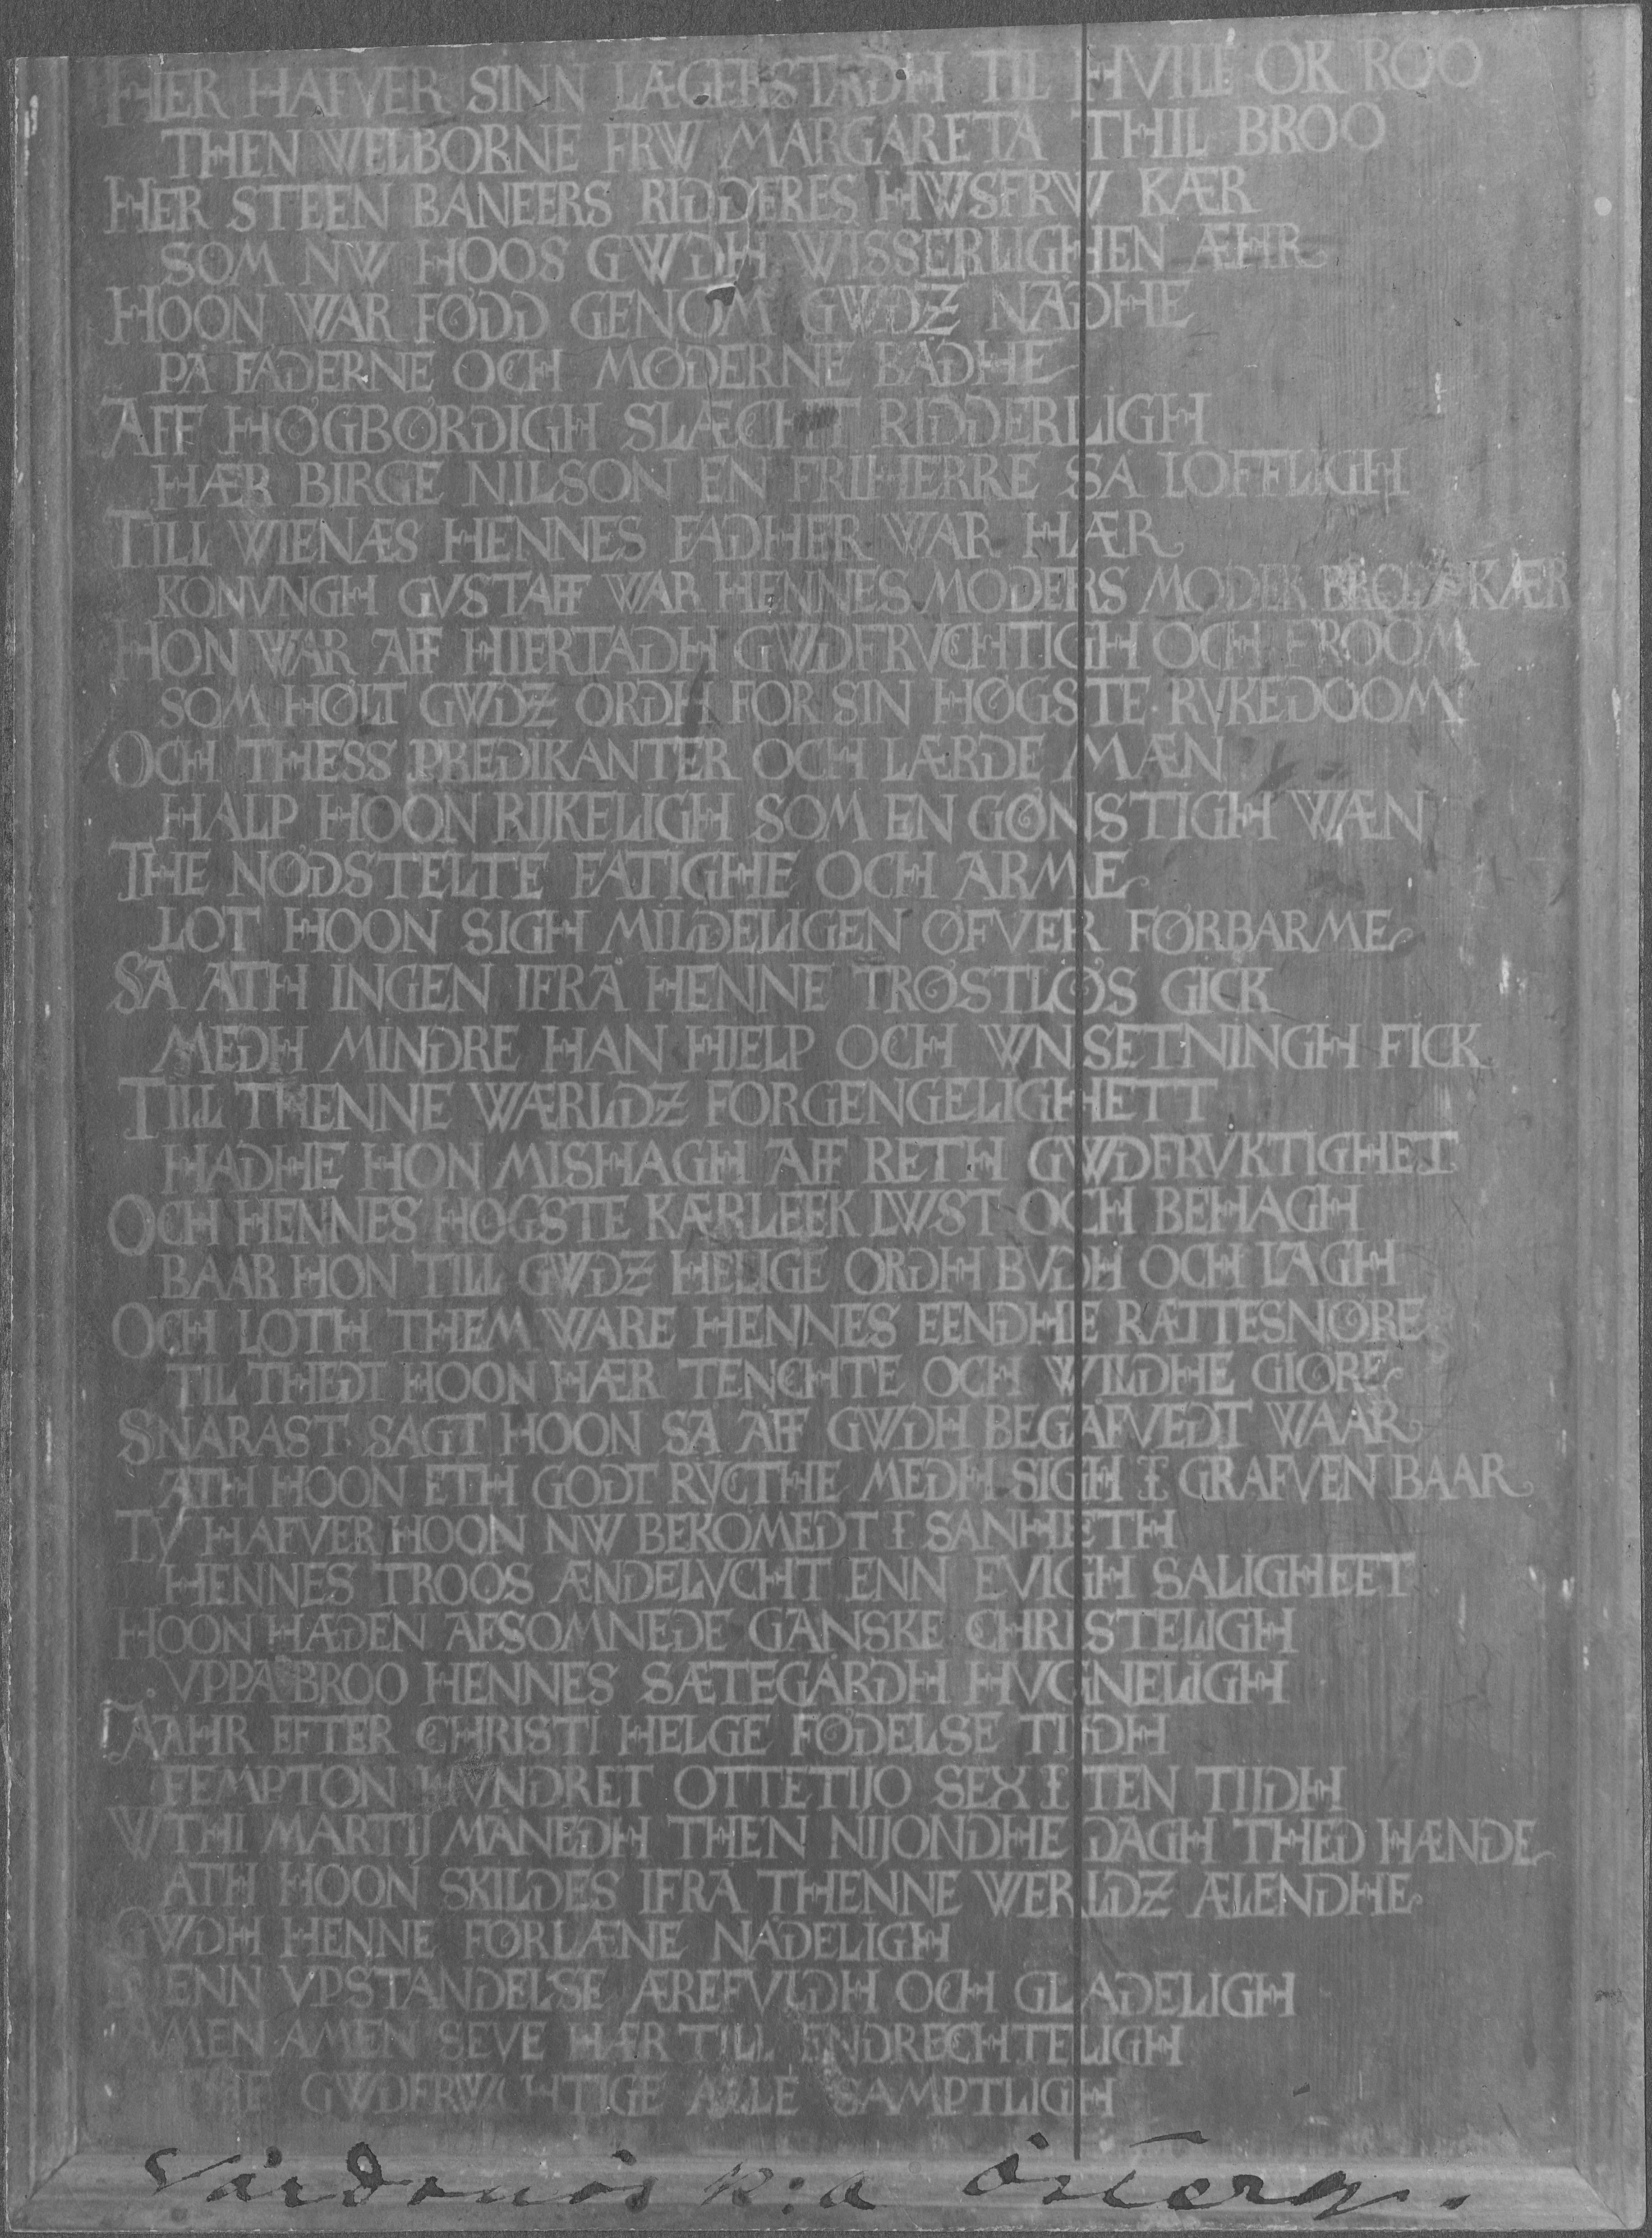 HER HAFVER SINN LÆGERSTADH TIL HVILE OK ROO
THEN WELBORNE FRW MARGARETA THIL BROO
HER STEEN BANEERS RIDDERES HWSFRW KÆR
SOM NW HOOS GWDH WISSERLIGHEN ÆHR
HOON WAR FØDD GENOM GWDZ NÅDHE
PÅ FÄDERNE OCH MØDERNE BÅDHE
AFF HØGBØRDIGH SLÆCHT RIDDERLIGH
HÆR BIRGE NILSON EN FRIHERRE SÅ LOFFLIGH
TILL WIENÆS HENNES FADHER WAR HÆR
KONVNGH GVSTAFF WAR HENNES MODERS MODER KÆR
HON WAR AFF HIERTADH GWDFRVCHTIGH OCH FROOM
SOM HØLT GWDZ ORDH FOR SIN HØGSTE RVKEDOOM
OCH THESS PREDIKANTER OCH LÆRDE MÆN
HALP HOON RIJKELIGH SOM EN GØNSTIGH WÆN
THE NØDSTELTE FATIGHE OCH ARME
LOT HOON SIGH MILDELIGEN ØFVER FØRBARME
SÅ ATH INGEN IFRÅ HENNE TRØSTLØS GICK
MEDH MINDRE HAN HIELP OCH WNSETNINGH FICK
TILL THENNE WÆRLDZ FORGENGELIGHETT
HADHE HON MISHAGH AFF RETH GWDFRVKTIGHET
OCH HENNES HØGSTE KÆRLEEK LWST OCH BEHAGH
BAAR HON TILL GWDZ HELIGE ORDH BVDH OCH LAGH
OCH LOTH THEM WARE HENNES EENDHE RÆTTESNØRE
TIL THEDT HOON HÆR TENCHTE OCH WILDHE GIØRE
SNARAST SAGT HOON SÅ AFF GWDH BEGÅFVEDT WAAR
ATH HOON ETH GODT RVCTHE MEDH SIGH I GRAFVEN BAAR
TV HAFVER HOON NW BEKOMEDT I SANHETH
HENNES TROOS ÆNDELVCHT ENN EVIGH SALIGHEET
HOON HÆDEN AFSOMNEDE GANSKE CHRISTELIGH
VPPÅ BROO HENNES SÆTEGÅRDH HVGNELIGH
ÅÅHR EFTER CHRISTI HELGE FØDELSE TIDH
FEMPTON HVNDRET OTTETIJO SEX I TEN TIIDH
WTHI MARTIJ MÅNEDH THEN NIJONDHE DAGH THED HÆNDE
ATH HOON SKILDES IFRÅ THENNE WERLDZ ÆLENDHE
GWDH HENNE FØRLÆNE NÅDELIGH
ENN VPSTANDELSE ÆREFVLDH OCH GLADELIGH
AMEN AMEN SEVE HÆR TILL ENDRECHTELIGH
THE GWDFRWCHTIGE ALLE SAMPTLIGH
Vårdnäs k:a Österg.